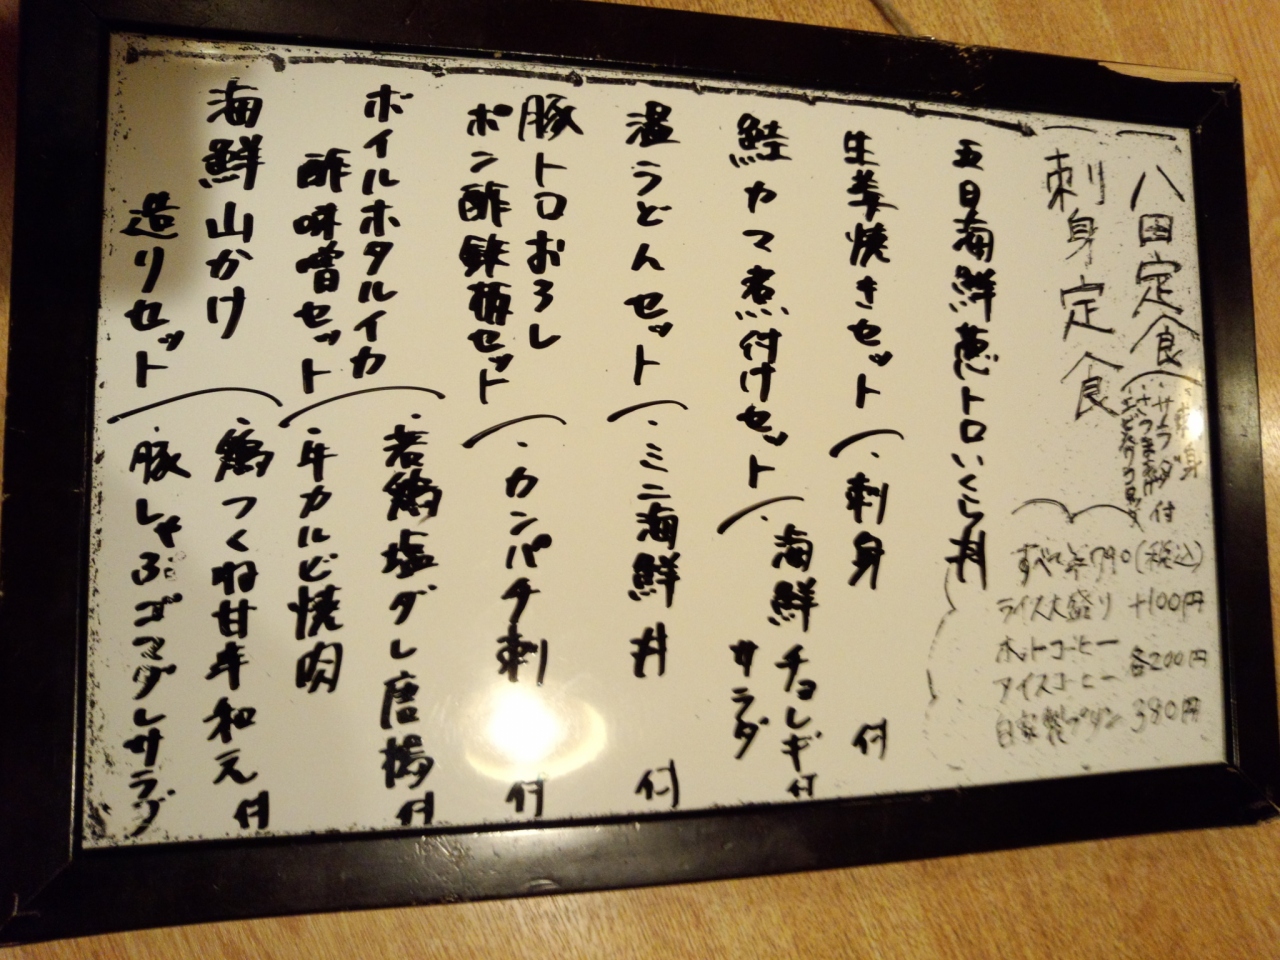 八田定食
・刺身
・サラダ付
刺身定食
すべて
(税込)
ライス大盛り +100円
ホットコーヒー
アイスコーヒー
各200円
自家製プリン 380円
五日海鮮葱トロいくら丼
生姜焼きセット
・刺身 付
鮭カマ煮付けセット
・海鮮チョレギ
サラダ 付
温うどんセット
・ミニ海鮮丼 付
豚トロおろし
ポン酢鉄板セット
・カンパチ刺 付
ボイルホタルイカ
酢味噌セット
・若鶏塩ダレ唐揚 付
・牛カルビ焼肉
海鮮山かけ
造りセット
・鶏つくね甘辛和え 付
・豚しゃぶゴマダレサラダ